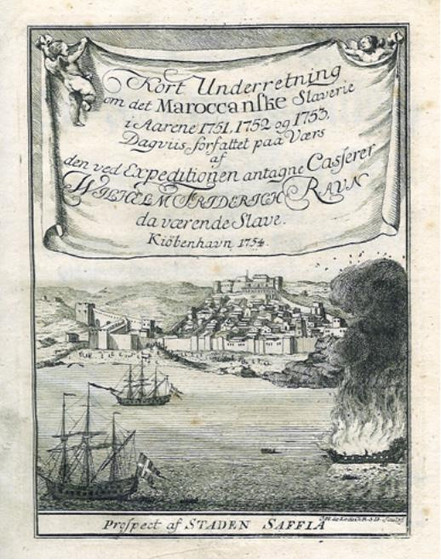 Kort Underretning
om det Maroccanske Slaverie
i Aarene 1751, 1752 og 1753,
Dagviis forfattet paa Værs
af
den ved Expeditionen antagne Casserer
WILHELM FRIDERICH RAVN
da værende Slave.
Kiöbenhavn 1754.
Prospect af STADEN SAFFIA